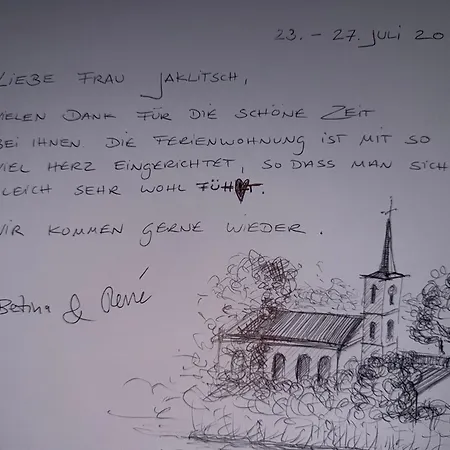 23. – 27. JULI 20
LIEBE FRAU JAKLITSCH,
VIELEN DANK FÜR DIE SCHÖNE ZEIT
BEI IHNEN. DIE FERIENWOHNUNG IST MIT SO
VIEL HERZ EINGERICHTET, SO DASS MAN SICH
GLEICH SEHR WOHL FÜHLT.
WIR KOMMEN GERNE WIEDER.
Betina & René